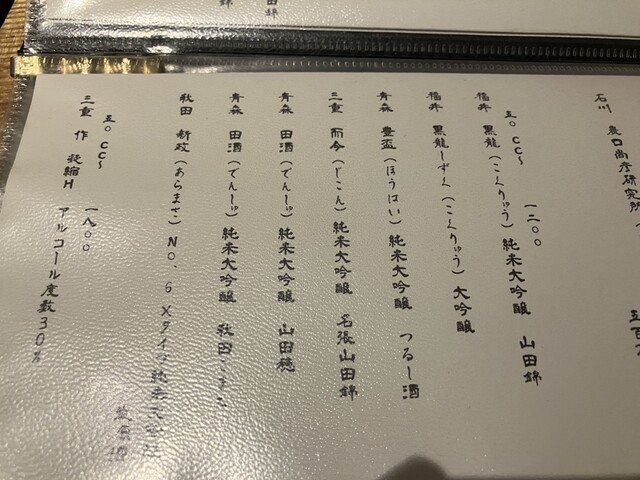 山田錦
石川 農口尚彦研究所
五〇CC〜 一二〇〇
福井 黒龍(こくりゅう)純米大吟醸 山田錦
福井 黒龍しずく(こくりゅう)大吟醸
青森 豊盃(ほうはい)純米大吟醸 つるし酒
三重 而今(じこん)純米大吟醸 名張山田錦
青森 田酒(でんしゅ)純米大吟醸 山田穂
青森 田酒(でんしゅ)純米大吟醸 秋田こまち
秋田 新政(あらまさ)NO、6 Xタイプ 純米大吟醸
五〇CC〜 一八〇〇
三重 作 凝縮H アルコール度数30%